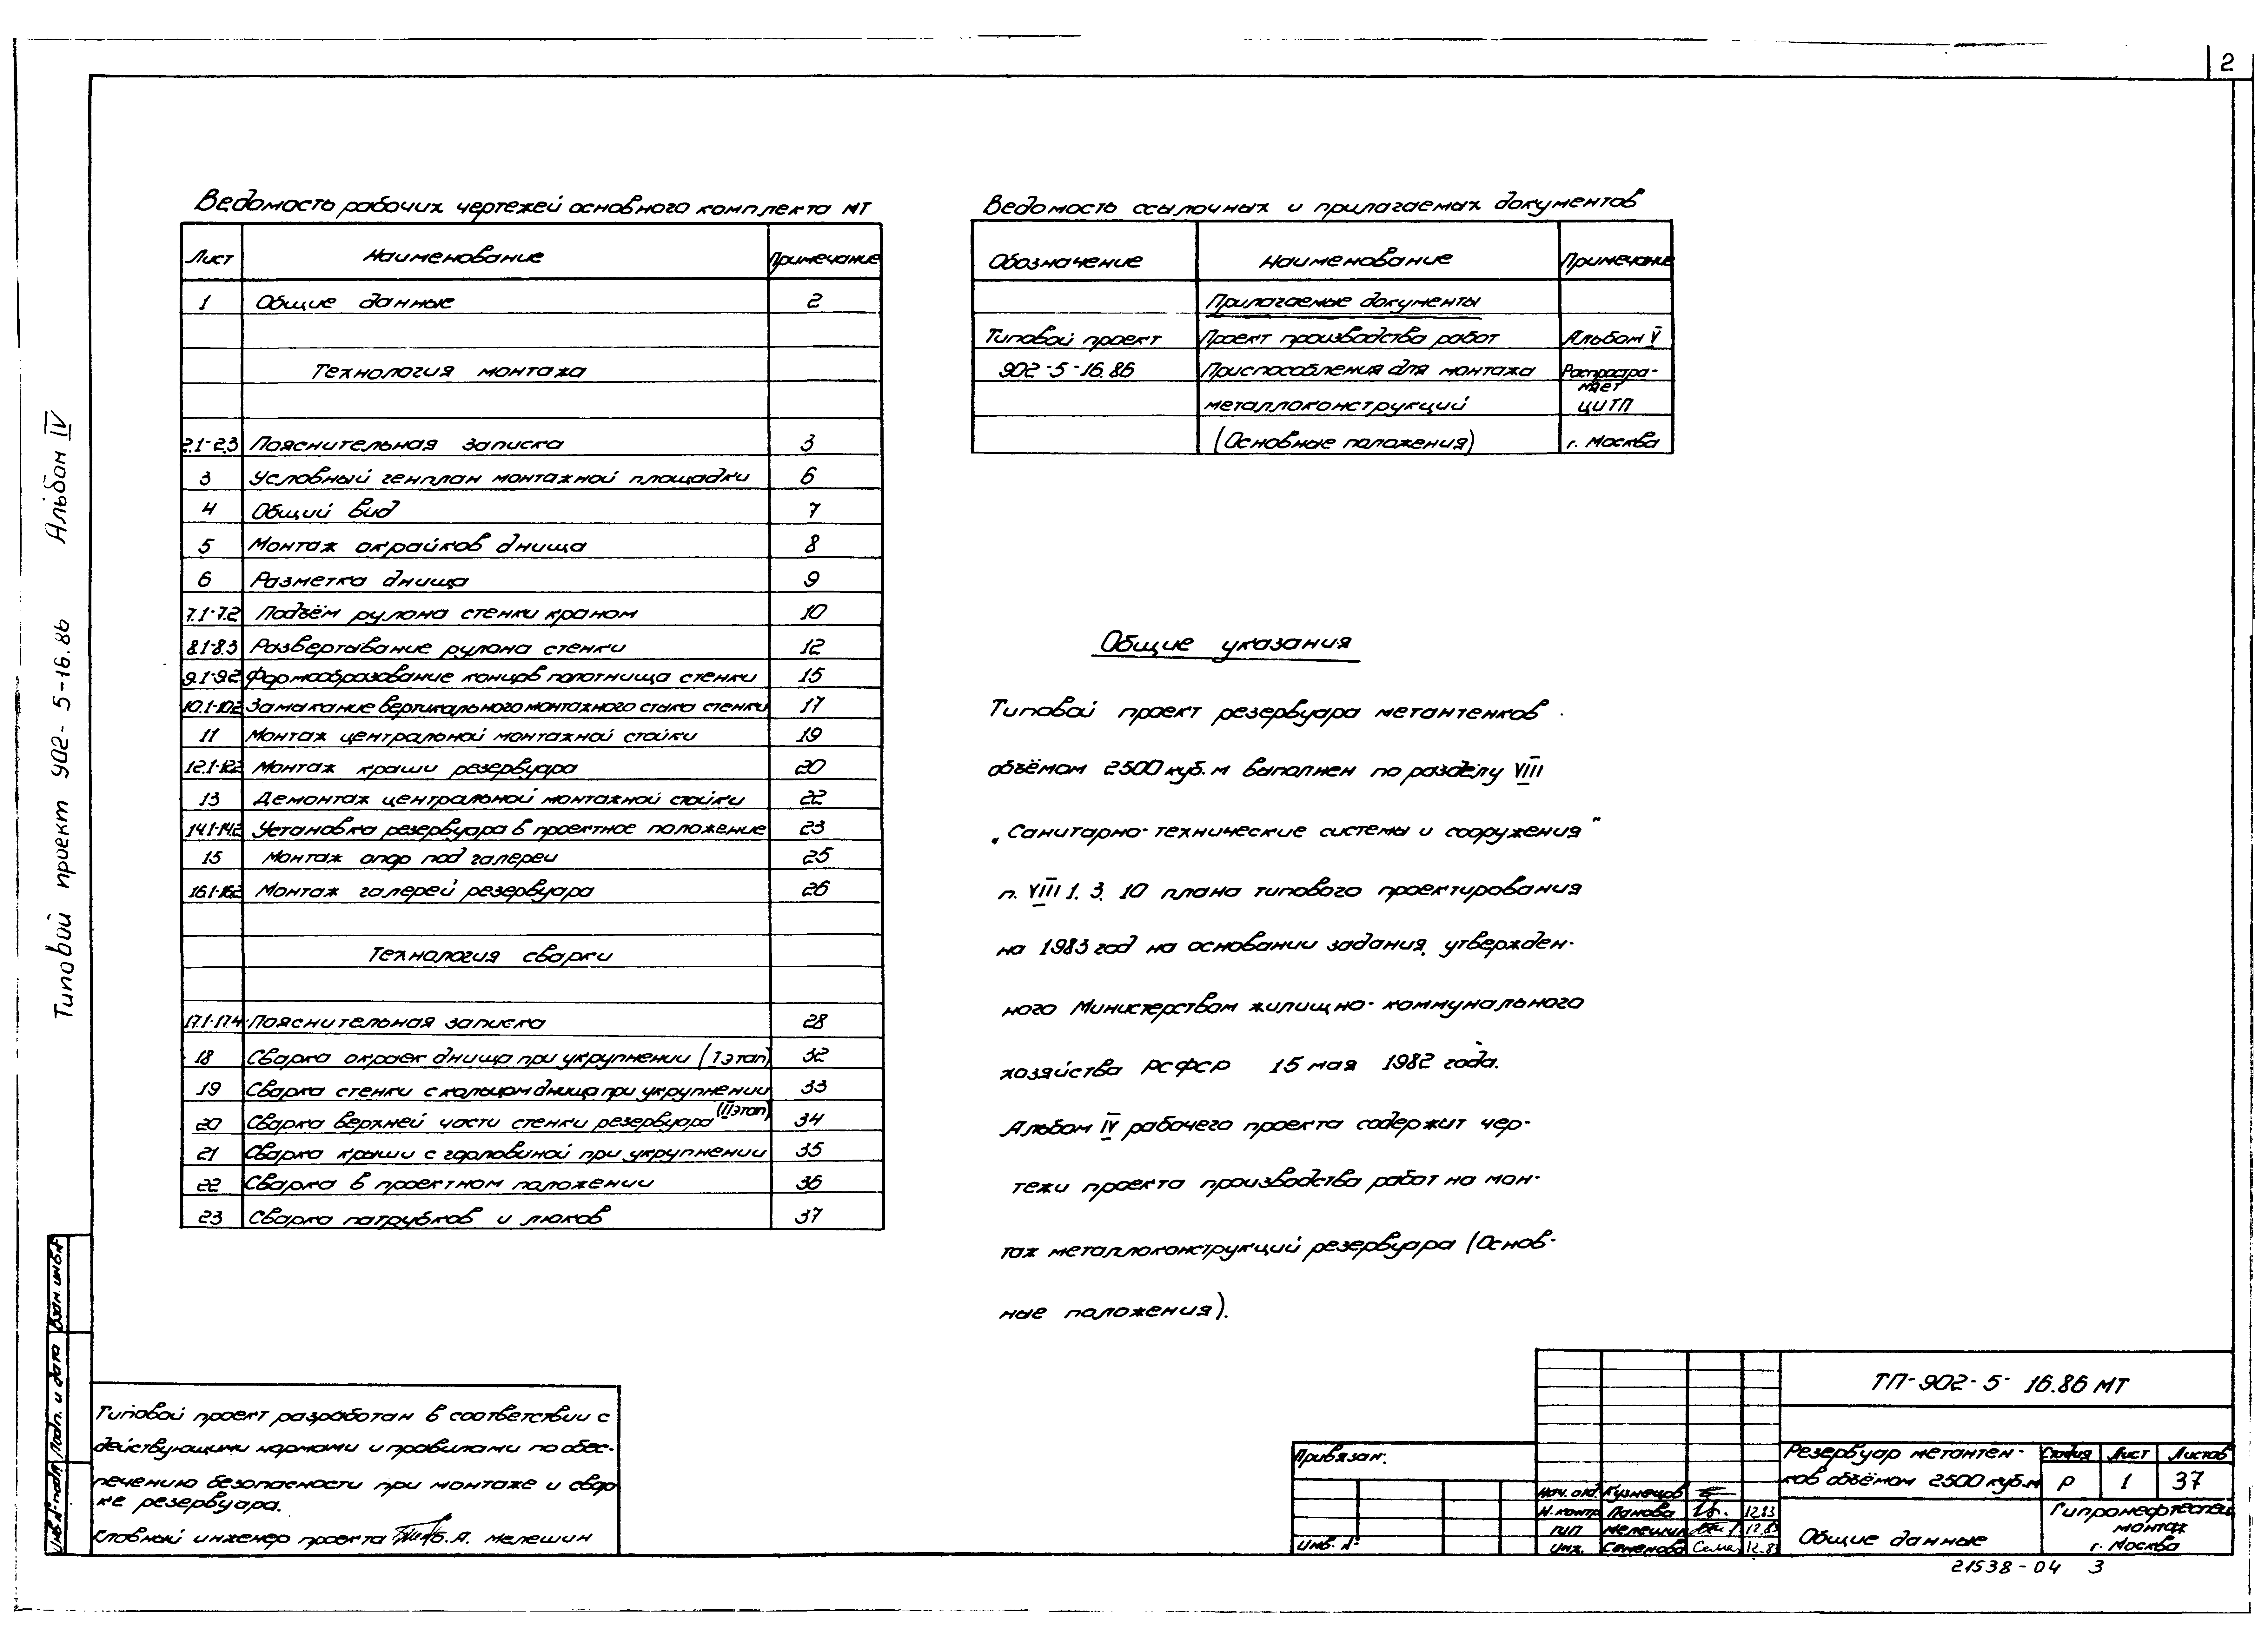 2
Типовой проект 902-5-16.86 Альбом IV
Ведомость рабочих чертежей основного комплекта МТ
Лист Наименование Примечание
1 Общие данные 2
Технология монтажа
2.1-2.3 Пояснительная записка 3
3 Условный генплан монтажной площадки 6
4 Общий вид 7
5 Монтаж окрайков днища 8
6 Разметка днища 9
7.1-7.2 Подъём рулона стенки краном 10
8.1-8.3 Развертывание рулона стенки 12
9.1-9.2 Формообразование концов полотнища стенки 15
10.1-10.2 Замыкание вертикального монтажного стыка стенки 17
11 Монтаж центральной монтажной стойки 19
12.1-12.2 Монтаж крыши резервуара 20
13 Демонтаж центральной монтажной стойки 22
14.1-14.2 Установка резервуара в проектное положение 23
15 Монтаж опор под галереи 25
16.1-16.2 Монтаж галерей резервуара 26
Технология сварки
17.1-17.4 Пояснительная записка 28
18 Сварка окраек днища при укрупнении (I этап) 32
19 Сварка стенки с кольцом днища при укрупнении 33
(II этап)
20 Сварка верхней части стенки резервуара 34
21 Сварка крыши с горловиной при укрупнении 35
22 Сварка в проектном положении 36
23 Сварка патрубков и люков 37
Ведомость ссылочных и прилагаемых документов
Обозначение Наименование Примечание
Прилагаемые документы
Типовой проект Проект производства работ Альбом V
902-5-16.86 Приспособления для монтажа Распростра-
няет
металлоконструкций ЦИТП
(Основные положения) г. Москва
Общие указания
Типовой проект резервуара метантенков
объёмом 2500 куб.м выполнен по разделу VIII
„Санитарно-технические системы и сооружения"
п. VIII 1. 3. 10 плана типового проектирования
на 1983 год на основании задания, утвержден-
ного Министерством жилищно-коммунального
хозяйства РСФСР 15 мая 1982 года.
Альбом IV рабочего проекта содержит чер-
тежи проекта производства работ на мон-
таж металлоконструкций резервуара (Основ-
ные положения).
Типовой проект разработан в соответствии с
действующими нормами и правилами по обес-
печению безопасности при монтаже и свар
ке резервуара.
Главный инженер проекта Б.А. Мелешин
Инв.№ подл Подп. и дата Взам. инв.№
Привязан:
Инв. №
Нач. отд. Кузнецов
Н. контр Панова 12.83
ГИП Мелешин 12.83
Инж. Семенова 12.83
ТП-902-5-16.86 МТ
Резервуар метантен-
ков объёмом 2500 куб.м
Стадия Лист Листов
Р 1 37
Общие данные
Гипронефтеспец
монтаж
г. Москва
21538-04 3